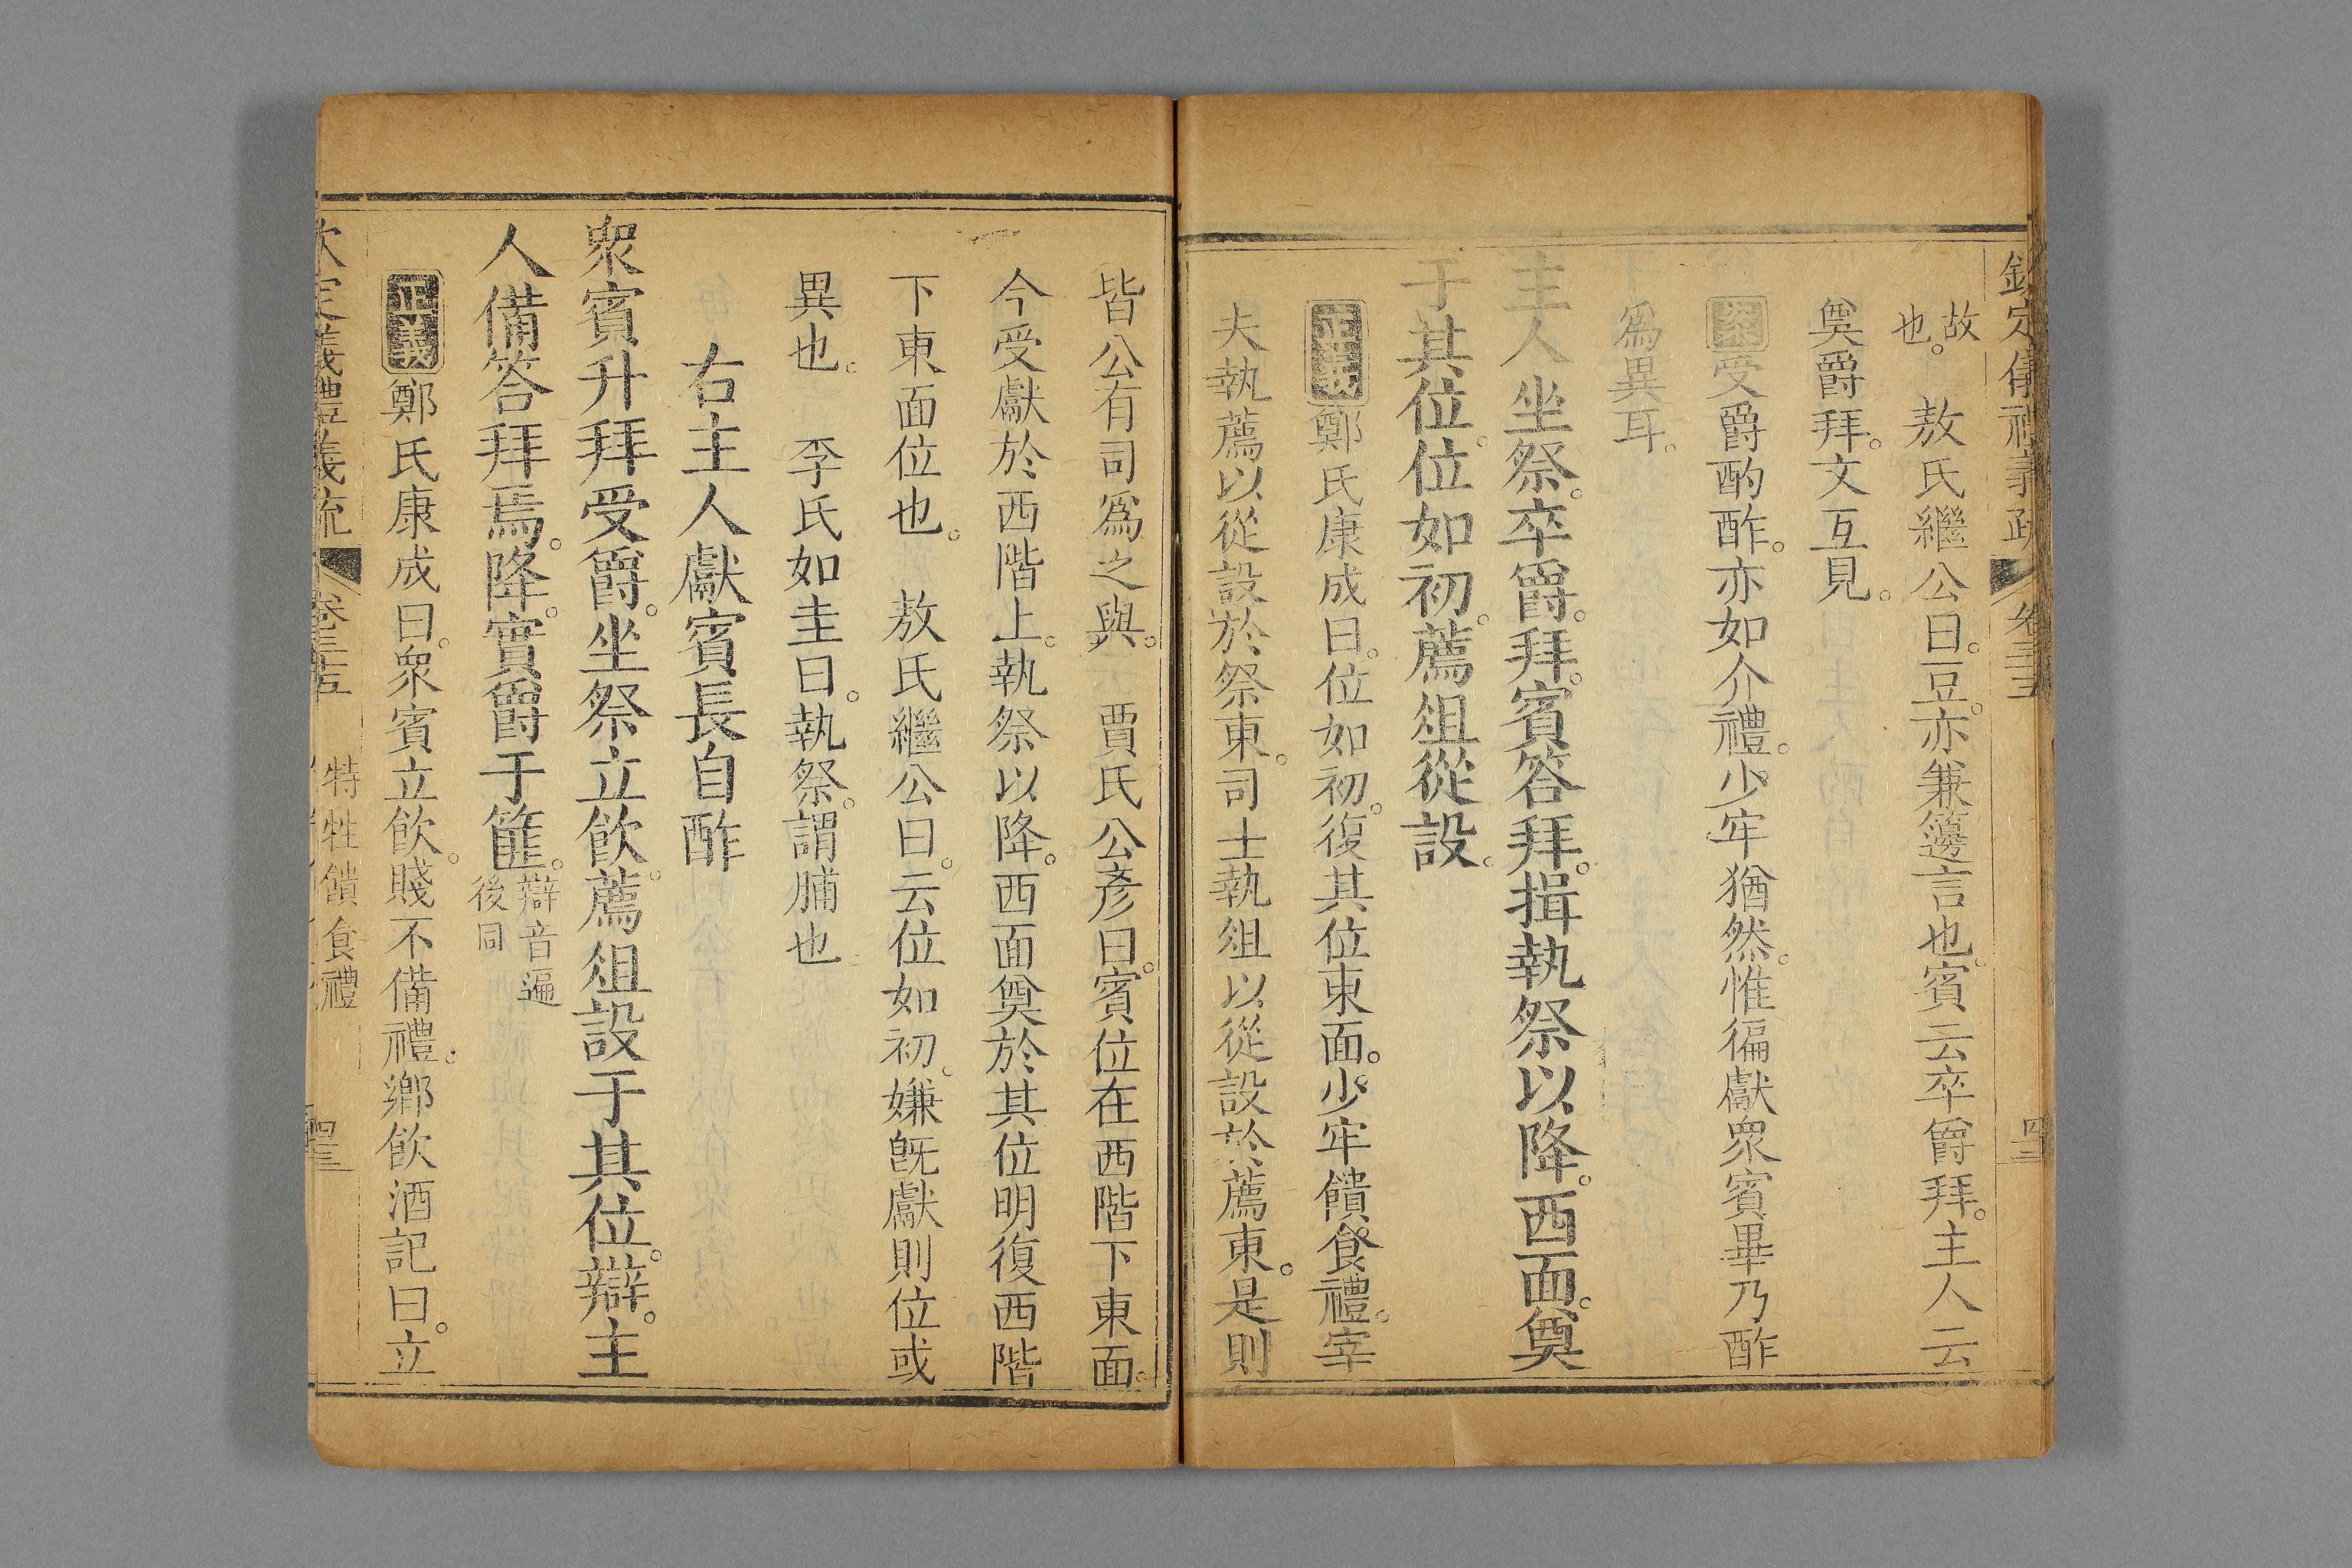 欽定儀禮義疏 卷三十五 四十三
故
也。 敖氏繼公曰。豆。亦兼籩言也。賓云卒爵拜。主人云
奠爵拜。文互見。
案受爵酌酢。亦如介禮。少牢猶然。惟徧獻衆賓畢乃酢
爲異耳。
主人坐祭。卒爵。拜。賓答拜。揖執祭以降。西面。奠
于其位。位如初。薦俎從設。
正義鄭氏康成曰。位如初。復其位東面。少牢饋食禮。宰
夫執薦以從設於祭東。司士執俎以從設於薦東。是則
皆公有司爲之與。 賈氏公彥曰。賓位在西階下東面。
今受獻於西階上。執祭以降。西面奠於其位明復西階
下東面位也。 敖氏繼公曰。云位如初。嫌旣獻則位或
異也。 李氏如圭曰。執祭。謂脯也。
右主人獻賓長自酢
衆賓升拜受爵。坐祭立飲。薦俎設于其位。辯。主
人備答拜焉。降。實爵于篚。辯音遍
後同
正義鄭氏康成曰。衆賓立飲。賤不備禮。鄉飲酒記曰。立
欽定儀禮義疏 卷三十五 特牲饋食禮 四十三